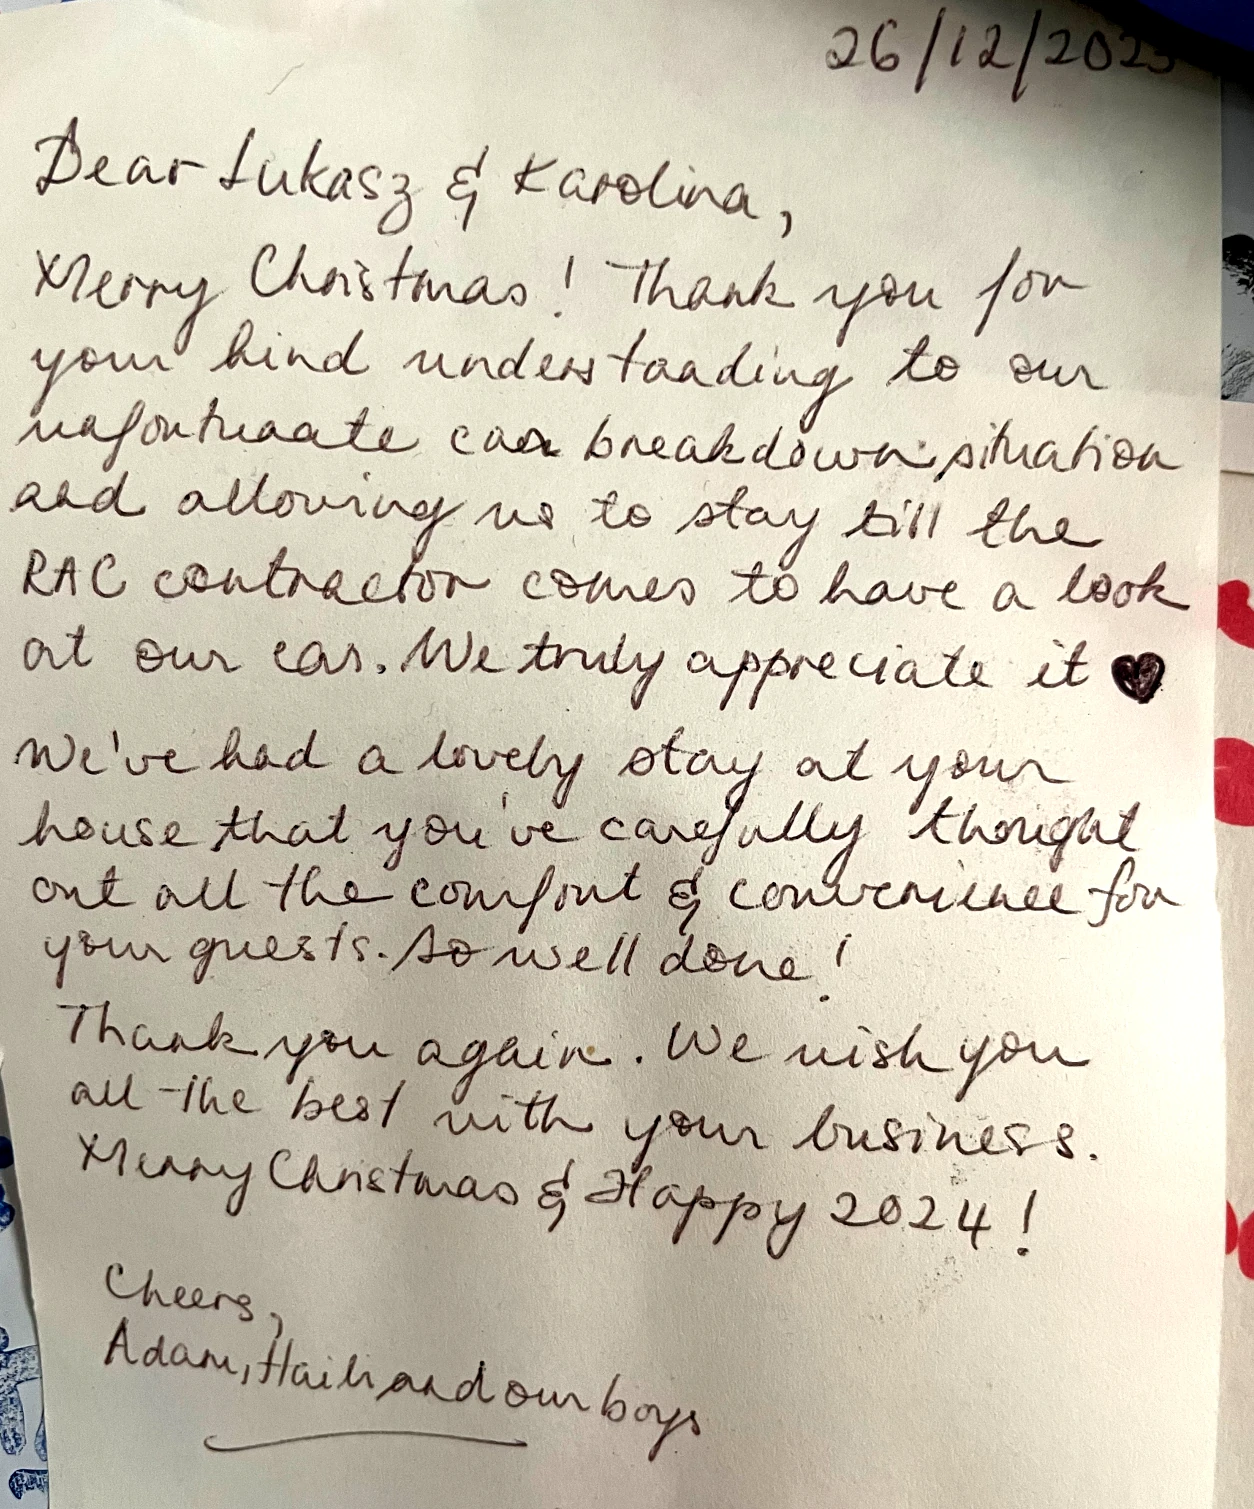 26/12/2023
Dear Lukasz & Karolina,
Merry Christmas! Thank you for
your kind understanding to our
unfortunate car breakdown situation
and allowing us to stay till the
RAC contractor comes to have a look
at our car. We truly appreciate it ♥
We've had a lovely stay at your
house that you've carefully thought
out all the comfort & convenience for
your guests. So well done!
Thank you again. We wish you
all the best with your business.
Merry Christmas & Happy 2024!
Cheers,
Adam, and our boys